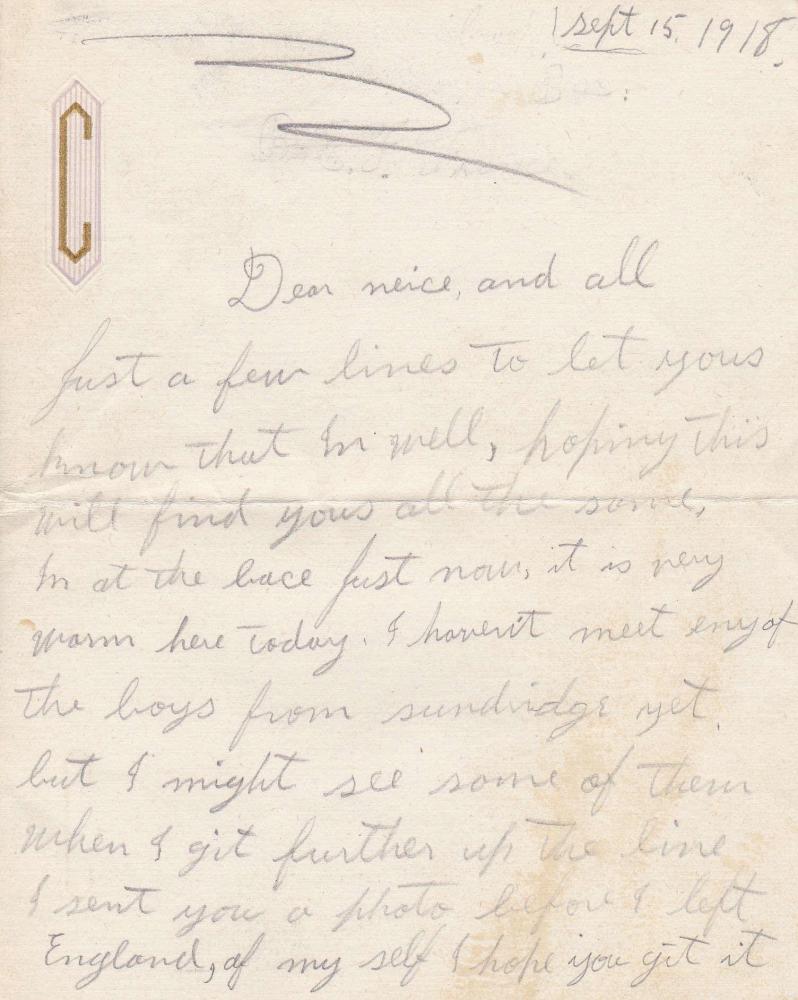 Sept 15. 1918.
C
Dear neice, and all
Just a few lines to let yous
know that Im well, hoping this
will find yous all the same,
Im at the bace just now, it is very
warm here today. I haven't meet eny of
the boys from sundridge yet
but I might see some of them
when I git further up the line
I sent you a photo before I left
England, of my self I hope you git it